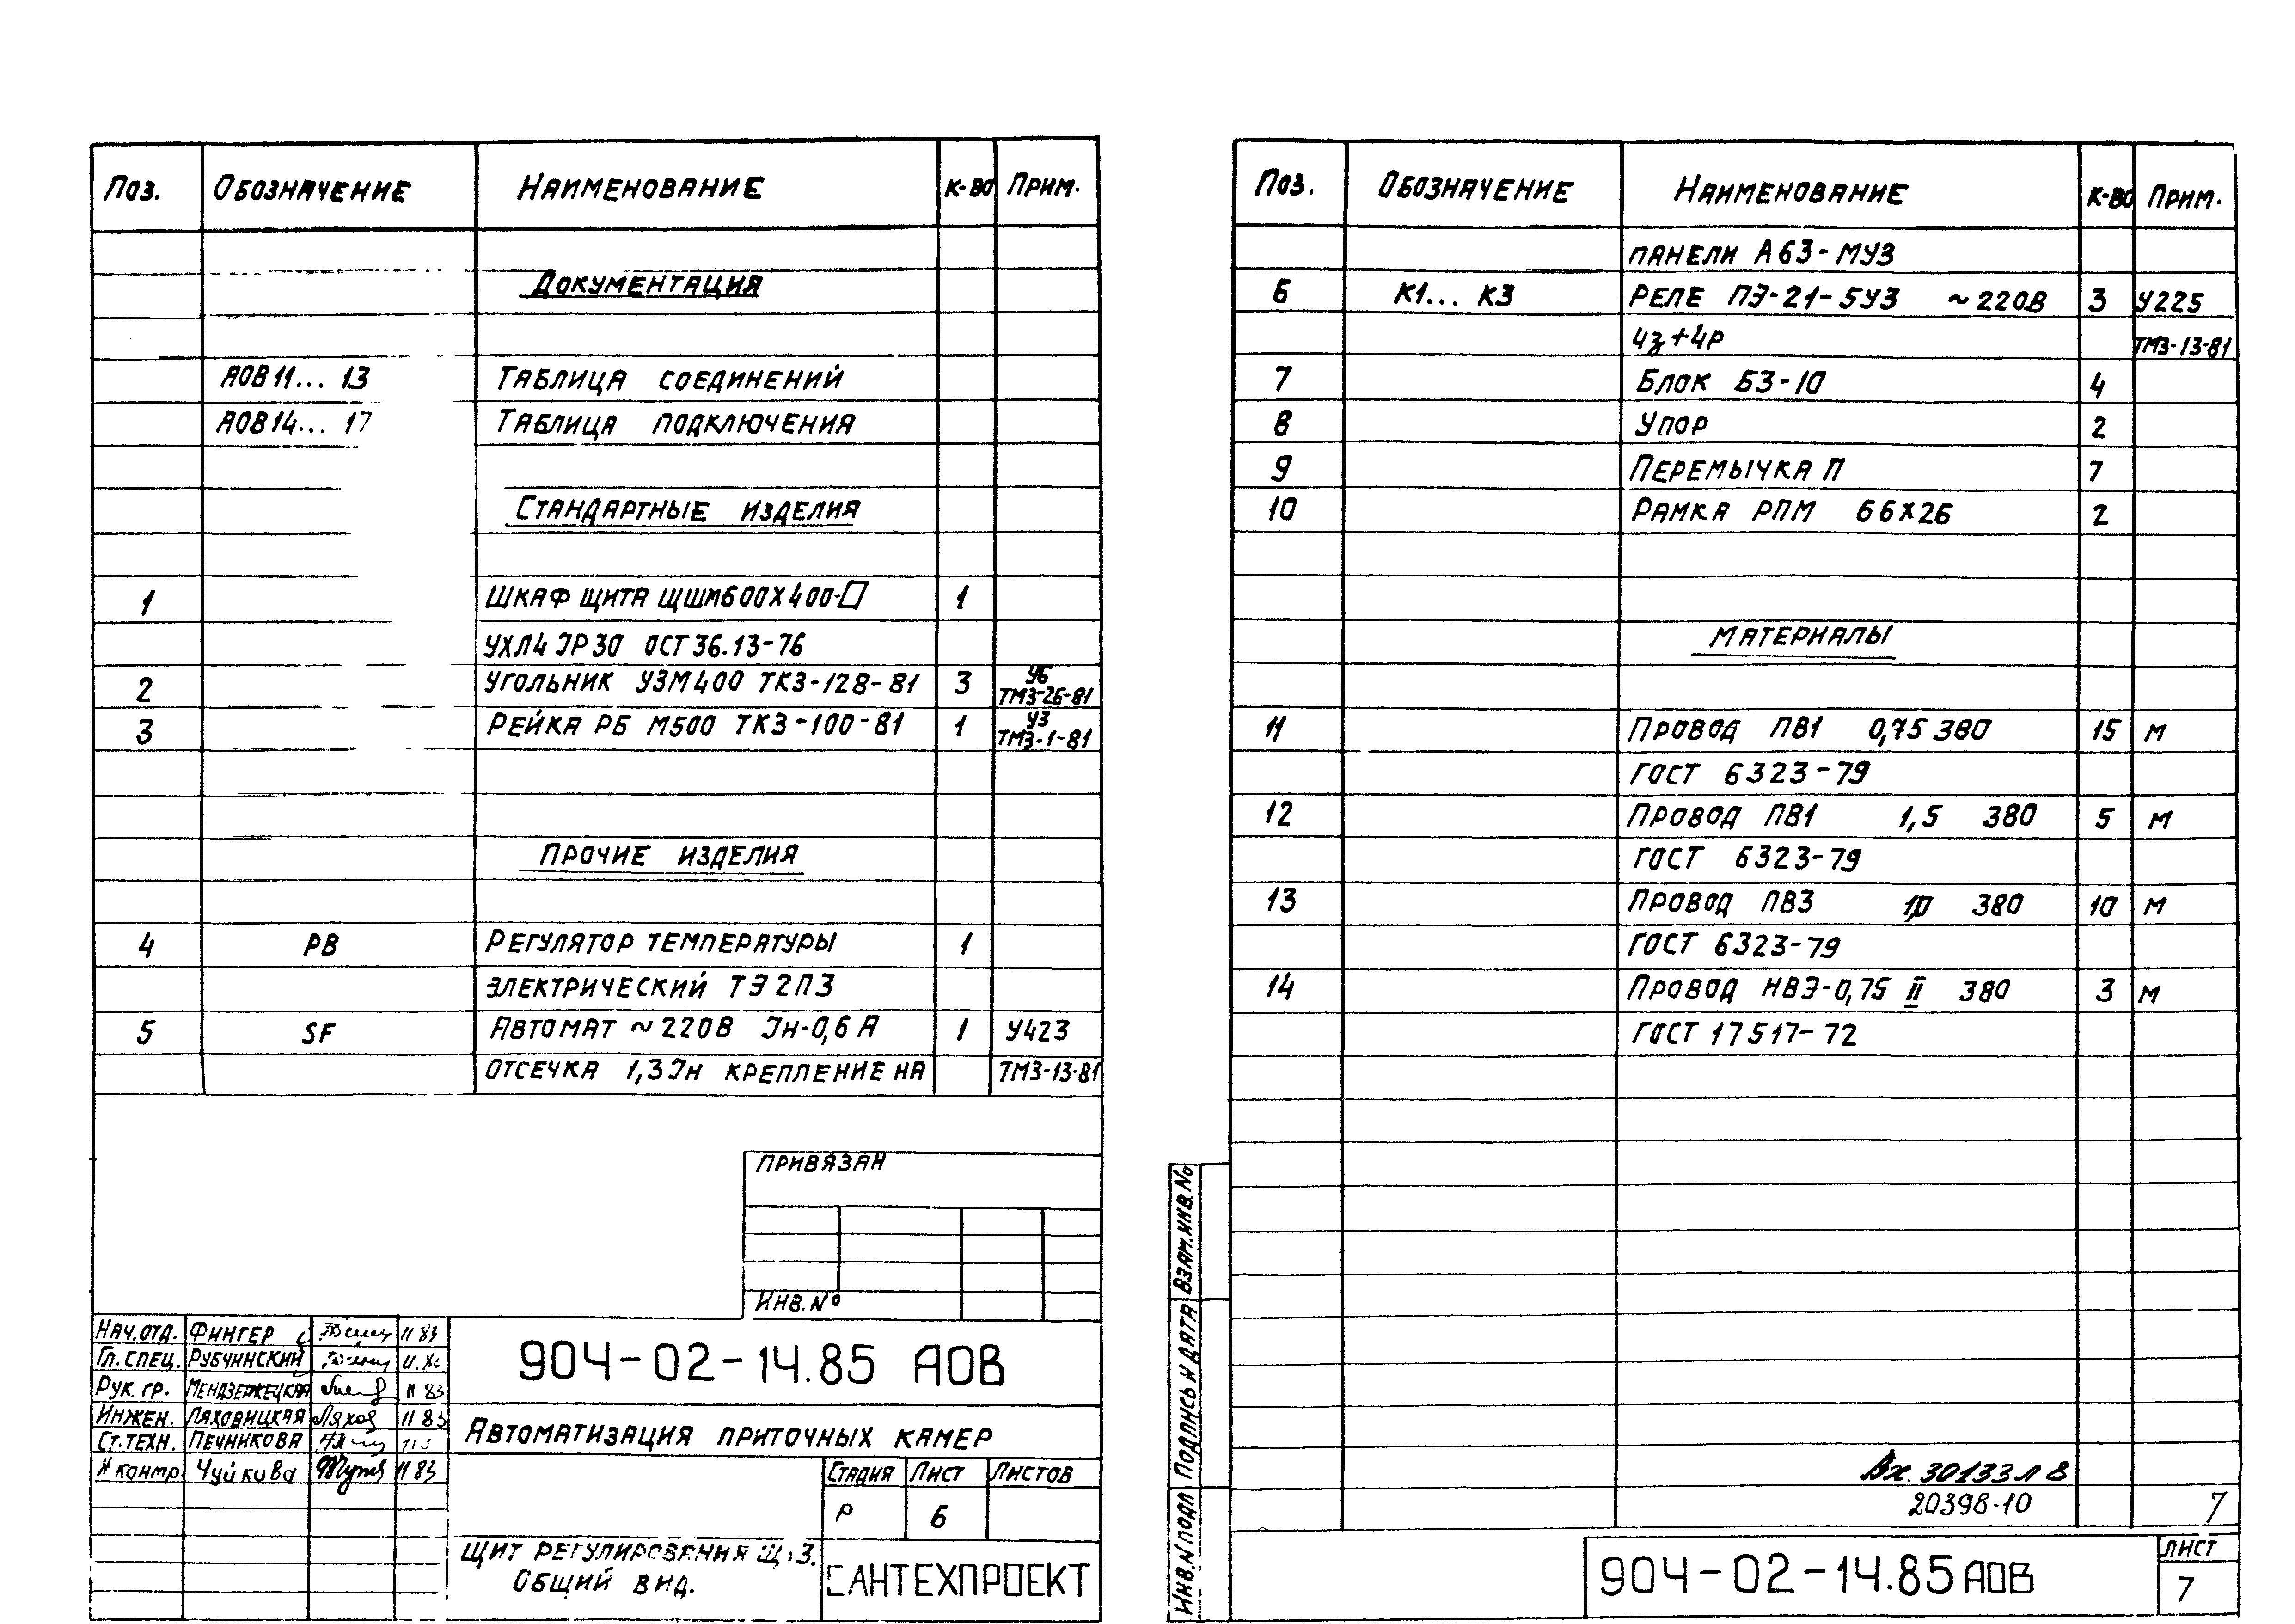 Поз. Обозначение Наименование К-во Прим.
Документация
АОВ11... 13 Таблица соединений
АОВ14... 17 Таблица подключения
Стандартные изделия
1 Шкаф щита ЩШМ600Х400-□ 1
УХЛ4 IP30 ОСТ36.13-76
2 Угольник УЗМ400 ТКЗ-128-81 3 У6
ТМЗ-26-81
3 Рейка РБ М500 ТКЗ-100-81 1 У3
ТМЗ-1-81
Прочие изделия
4 РВ Регулятор температуры 1
электрический ТЭ2П3
5 SF Автомат ~220В Iн-0,6А 1 У423
отсечка 1,3Iн крепление на ТМЗ-13-81
Привязан
Инв.№
Нач.отд. Фингер 11 83
Гл.спец. Рубчинский
Рук.гр. Мендзержецкая 11 83
Инжен. Ляховицкая 11 83
Ст.техн. Печникова
Н контр. Чуйкова 11 83
904-02-14.85 АОВ
Автоматизация приточных камер
Стадия Лист Листов
Р 6
Щит регулирования Щ.3.
Общий вид.
САНТЕХПРОЕКТ
Поз. Обозначение Наименование К-во Прим.
панели А63-МУ3
6 К1... К3 Реле ПЭ-21-5У3 ~220В 3 У225
4з+4р ТМЗ-13-81
7 Блок БЗ-10 4
8 Упор 2
9 Перемычка П 7
10 Рамка РПМ 66Х26 2
Материалы
11 Провод ПВ1 0,75 380 15 м
ГОСТ 6323-79
12 Провод ПВ1 1,5 380 5 м
ГОСТ 6323-79
13 Провод ПВ3 1,0 380 10 м
ГОСТ 6323-79
14 Провод НВЭ-0,75 II 380 3 м
ГОСТ 17517-72
Вх. 30133 л 8
20398-10 7
904-02-14.85 АОВ
Лист
7
Инв.N подл Подпись и дата Взам.инв.№